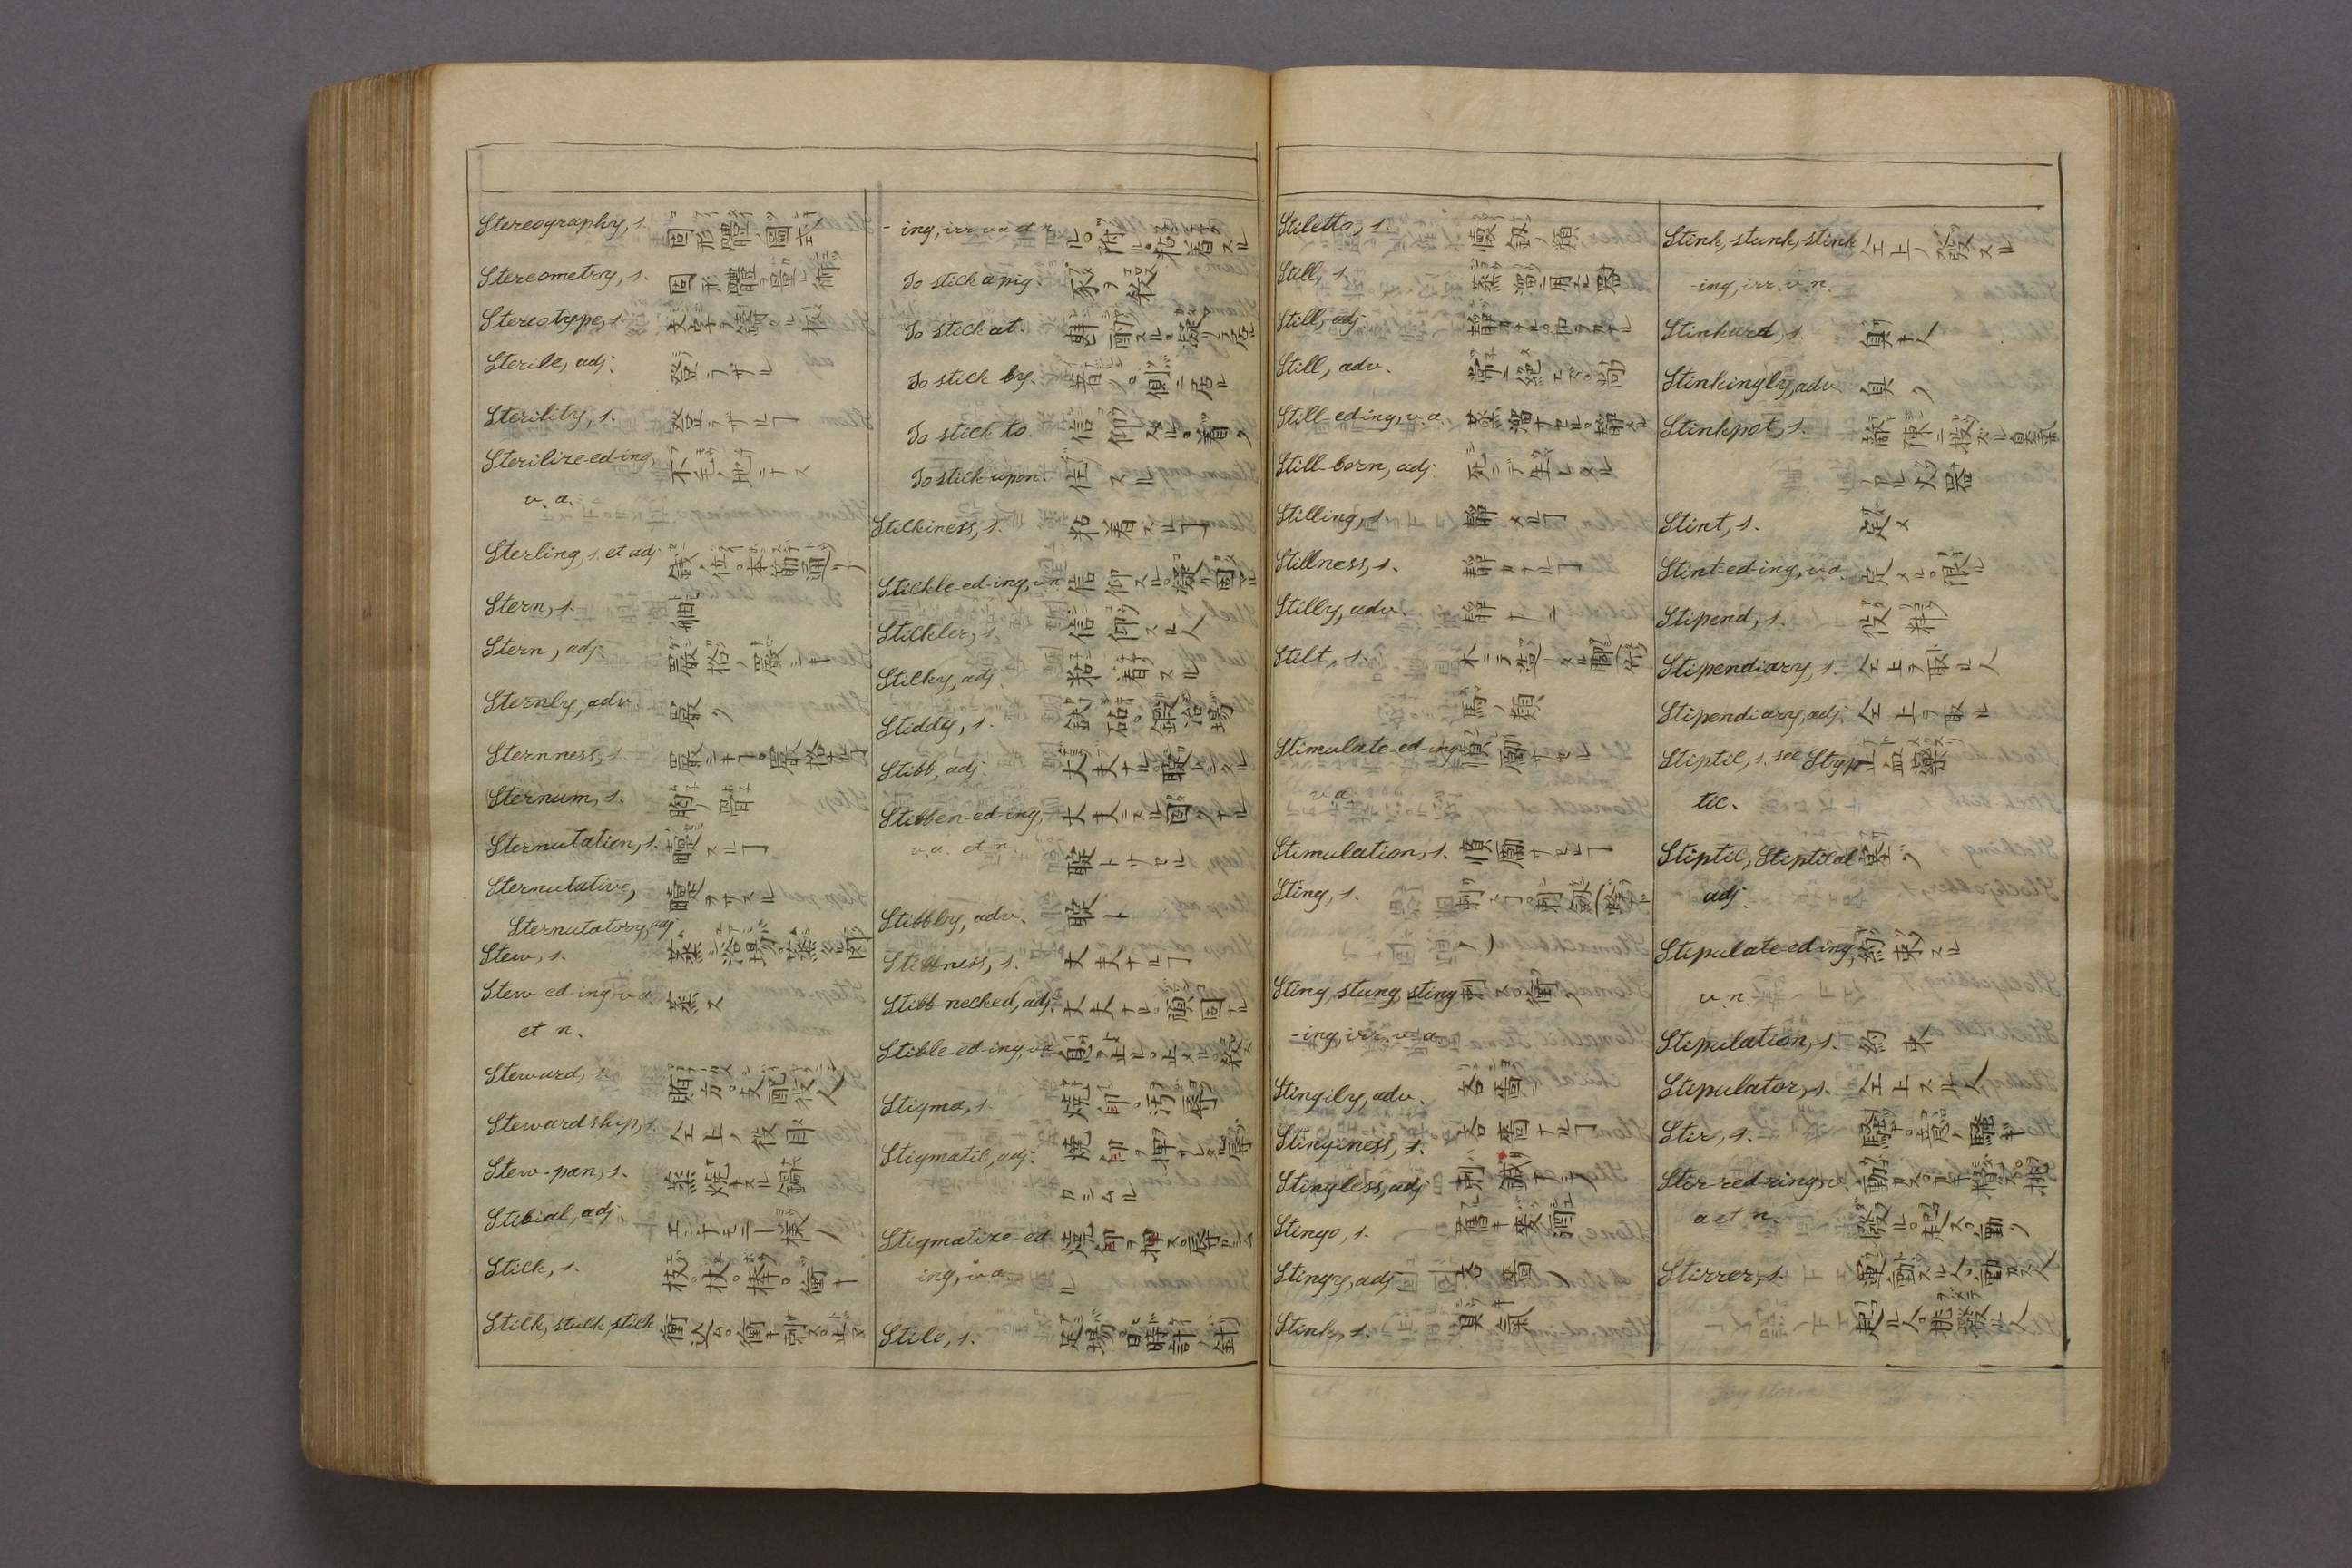 Stereography, s. 固形體ノ圖式
Stereometry, s. 固形體ヲ量ル術
Stereotype, s.
Sterile, adj. 登ラザル
Sterility, s. 登ラザルヿ
Sterilize-ed-ing, 不毛ノ地ニナス
v. a.
Sterling, s. et adj. 銭ノ位。本筋通ノ
Stern, s.
Stern, adj. 嚴格ノ嚴シキ
Sternly, adv. 嚴ク
Sternness, s. 嚴シキヿ。嚴格ナルヿ
Sternum, s. 胸ノ骨
Sternutation, s. 嚔スルヿ
Sternutative, 嚔ヲサスル
Sternutatory, adj.
Stew, s.
Stew-ed-ing, v. a. 蒸ス
et n.
Steward, s. 賄方。支配役人
Stewardship, s. 仝上ノ役目
Stew-pan, s. 蒸焼キスル鍋
Stibial, adj.
Stick, s. 枝。杖。棒。衝キ
Stick, stuck, stick 衝込ム。衝キ刺ス。止マ
-ing, irr. v. a. et n. ル。附ル。粘着スル
To stick a pig. 豕ヲ殺ス
To stick at.
To stick by. 着ク。側ニ居ル
To stick to. 信仰スル。着ク
To stick upon. 住スル
Stickiness, s. 粘着スルヿ
Stickle-ed-ing, v. n.
Stickler, s. 信仰スル人
Sticky, adj. 粘着スル
Stiddy, s. 鉄砧。鍛冶場
Stiff, adj.
Stiffen-ed-ing,
v. a. et n.
Stiffly, adv.
Stiffness, s. 丈夫ナルヿ
Stiff-necked, adj. 丈夫ナル。頑固ナル
Stifle-ed-ing, v. a. 息ヲ止ル。止メル。殺ス
Stigma, s. 焼印。汚辱
Stigmatic, adj. 焼印ヲ押シタル。辱
カシムル
Stigmatize-ed 焼印ヲ押ス。辱シム
ing, v. a. ル
Stile, s. 足場。日時計ノ針
Stiletto, s. 懐劔ノ類
Still, s. 蒸溜ニ用ル器
Still, adj.
Still, adv. 常ニ絶エズ。尚
Still-ed-ing, v. a.
Still-born, adj. 死シテ生レタル
Stilling, s. 静メルヿ
Stillness, s. 静カナルヿ
Stilly, adv. 静カニ
Stilt, s. 木ニテ造リタル脚(竹
馬ノ類
Stimulate-ed-ing 憤勵サセル
v. a.
Stimulation, s.
Sting, s.
Sting, stung, sting 刺ス。衝ク
-ing, irr. v. a.
Stingily, adv. 吝嗇ニ
Stinginess, s. 吝嗇ナルヿ
Stingless, adj. 刺鍼ナシノ
Stingo, s. 舊キ麦酒
Stingy, adj. 吝嗇ノ
Stink, s. 臭氣
Stink, stunk, stink 仝上ヲ發スル
-ing, irr. v. n.
Stinkard, s. 臭キ人
Stinkingly, adv. 臭ク
Stinkpot, s. 敵陳ニ投ズル臭氣
ノアル火器
Stint, s. 定メ
Stint-ed-ing, v. a. 定メル。限ル
Stipend, s. 役料
Stipendiary, s. 仝上ヲ取ル人
Stipendiary, adj. 仝上ヲ取ル
Stiptic, s. see Styp 止血藥
tic.
Stiptic, Stiptical
adj.
Stipulate-ed-ing, 約束スル
v. n.
Stipulation, s. 約束
Stipulator, s. 仝上スル人
Stir, s.
Stir-red-ring, v.
a et n. 撥ル。起ス。動ク
Stirrer, s. 運動スル人。動ス人
起ル人。挑發スル人